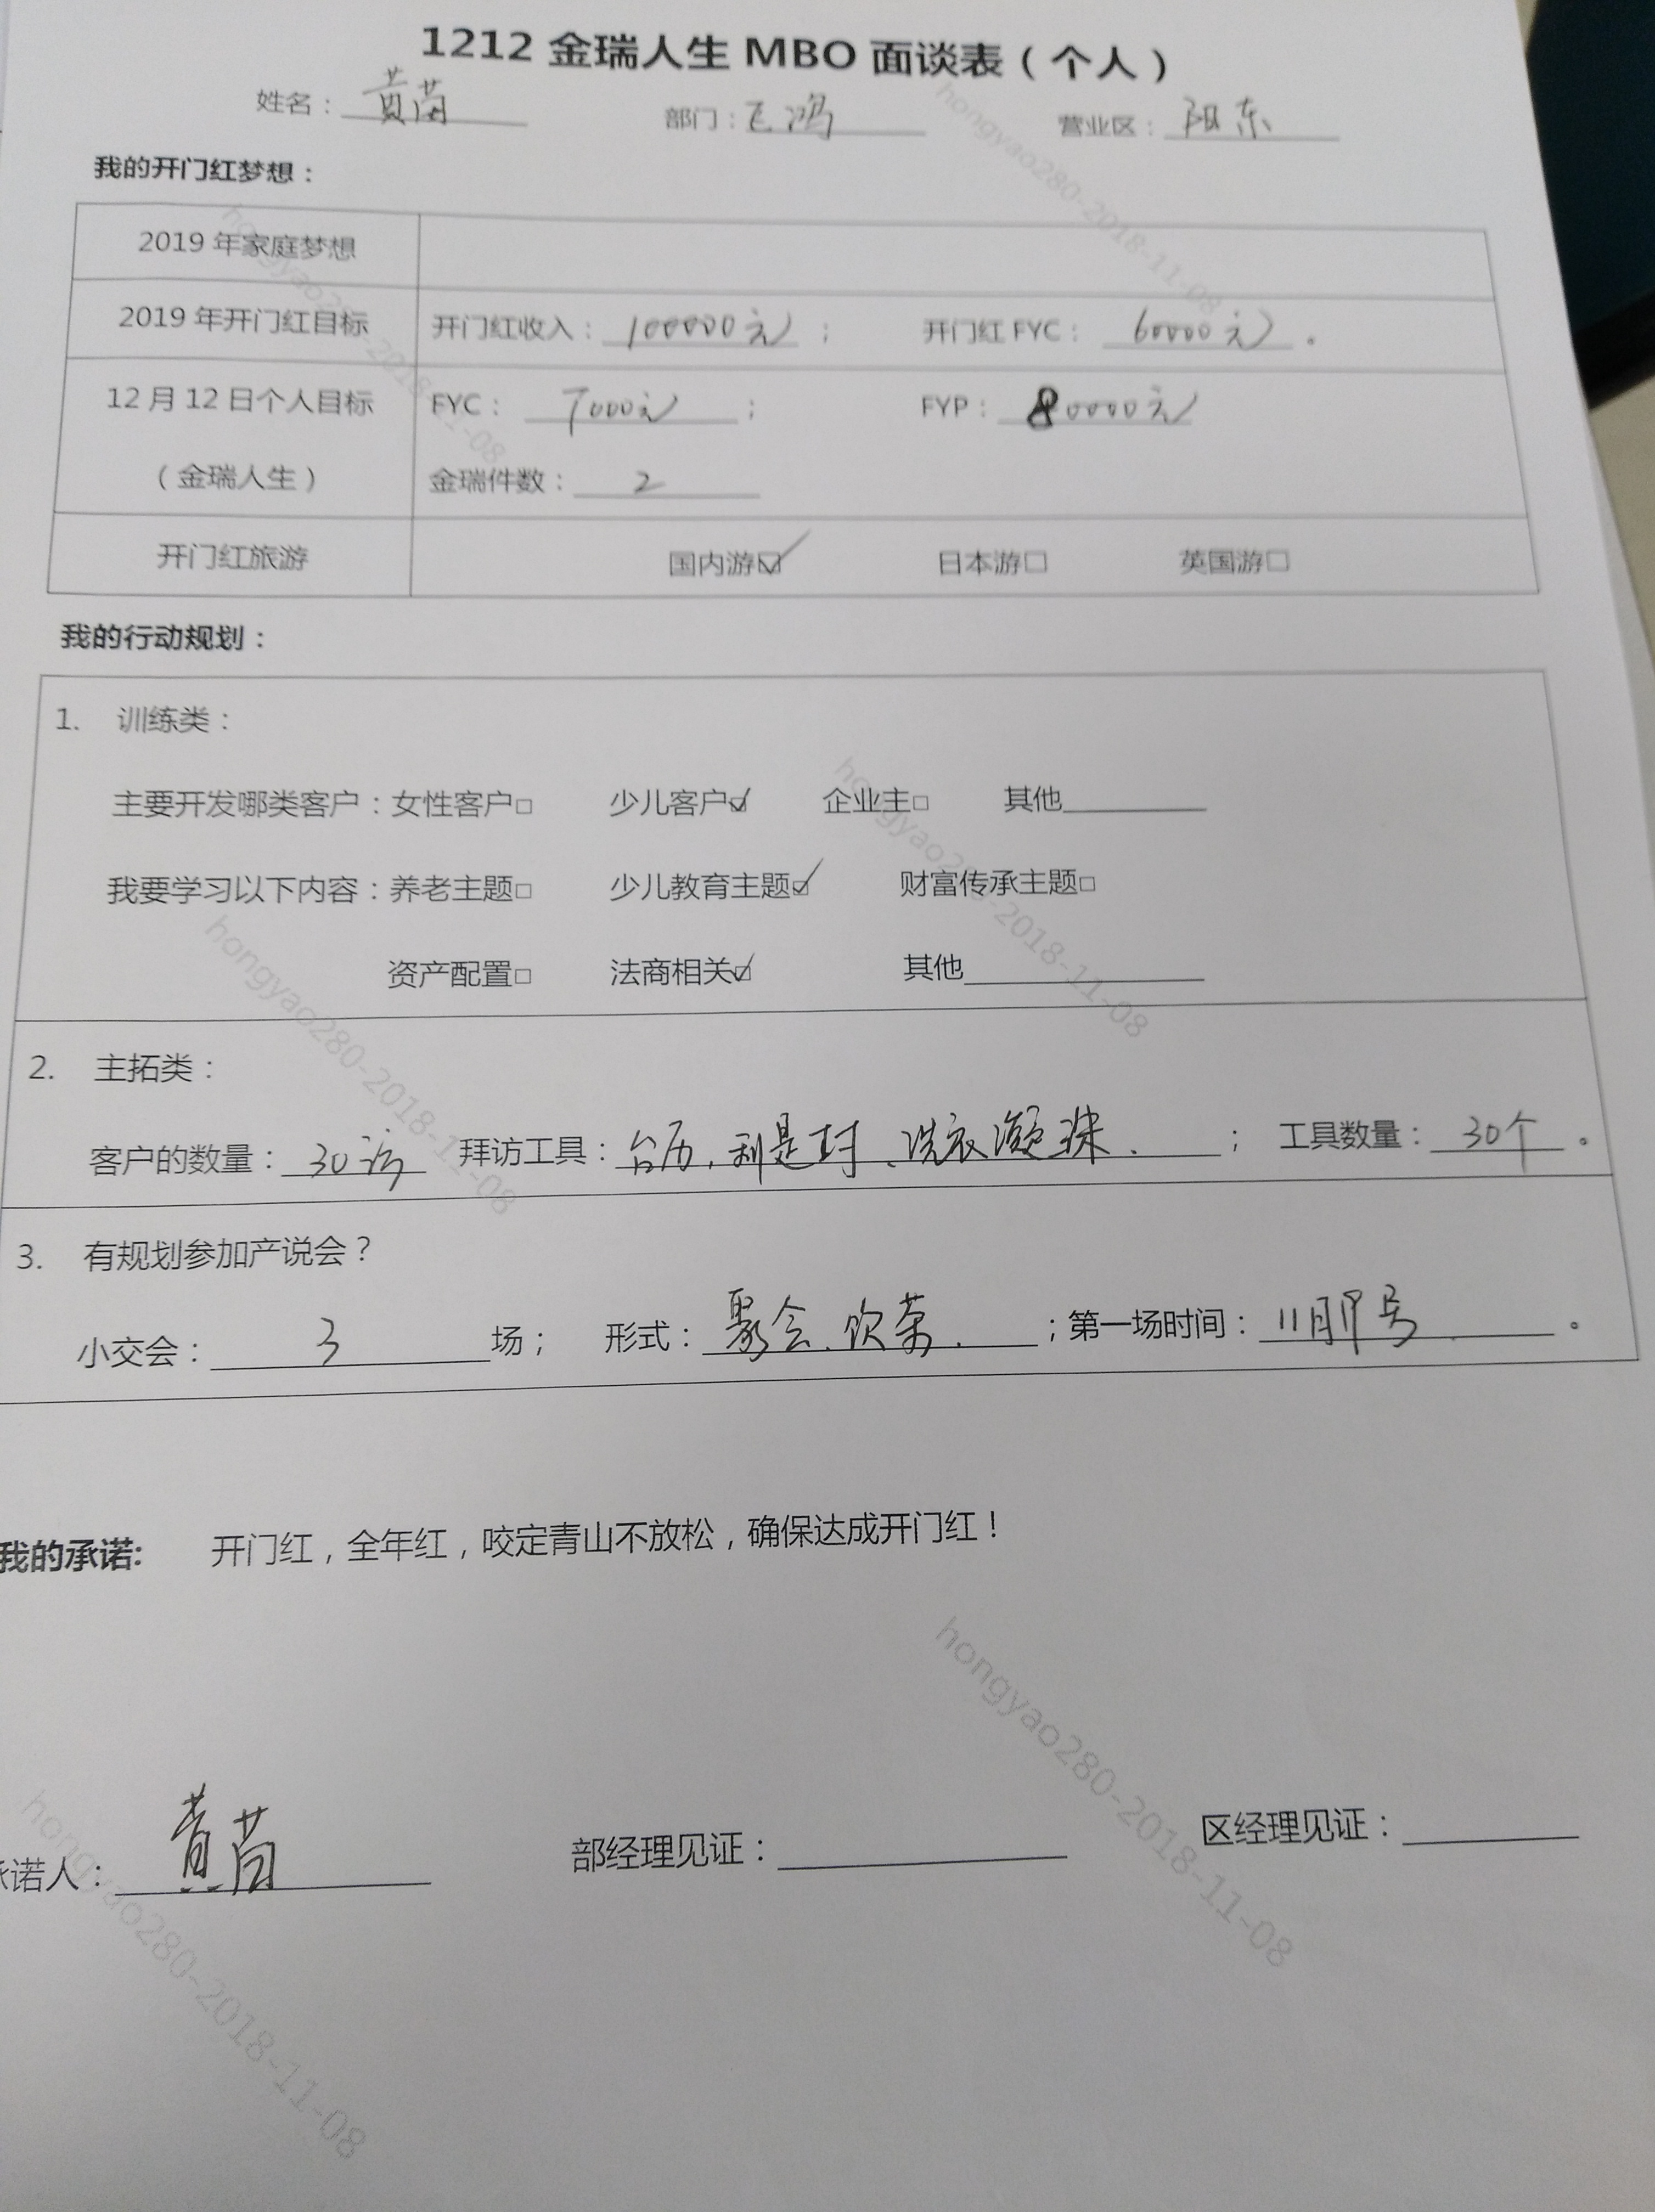 1212 金瑞人生 MBO 面谈表（个人）
姓名：黄苗 部门：飞鸿 营业区：阳东
我的开门红梦想：
2019 年家庭梦想
2019 年开门红目标 开门红收入：100000元； 开门红 FYC：60000元。
12 月 12 日个人目标 FYC：7000元； FYP：80000元
（金瑞人生） 金瑞件数：2
开门红旅游 国内游☑ 日本游□ 英国游□
我的行动规划：
1. 训练类：
主要开发哪类客户：女性客户□ 少儿客户☑ 企业主□ 其他
我要学习以下内容：养老主题□ 少儿教育主题☑ 财富传承主题□
资产配置□ 法商相关☑ 其他
2. 主拓类：
客户的数量：30访 拜访工具：台历，利是封、洗衣凝珠.； 工具数量：30个。
3. 有规划参加产说会？
小交会：3场； 形式：聚会、饮茶.；第一场时间：11月 号。
我的承诺: 开门红，全年红，咬定青山不放松，确保达成开门红！
承诺人：黄苗 部经理见证： 区经理见证：
hongyao280-2018-11-08
hongyao280-2018-11-08
hongyao280-2018-11-08
hongyao280-2018-11-08
hongyao280-2018-11-08
hongyao280-2018-11-08